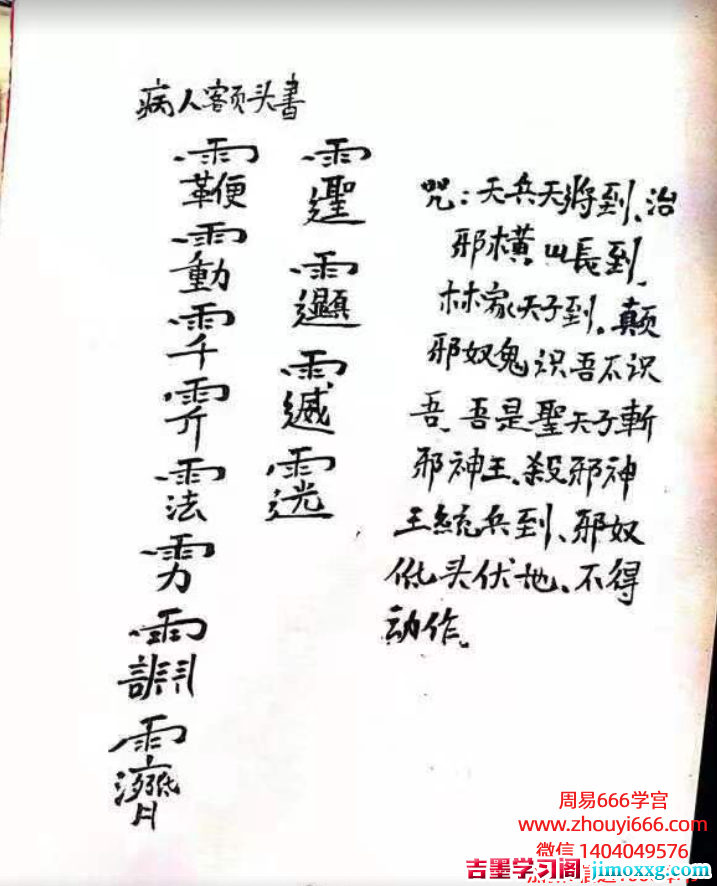 病人额头書
咒:天兵天將到、治
邪横山長到、
林家天子到。颠
邪奴鬼识吾不识
吾、吾是聖天子斬
邪神王、殺邪神
王統兵到、邪奴
低头伏地、不得
动作、
周易666学宫
www.zhouyi666.com
微信 1404049576
吉墨学习阁 jimoxxg.com